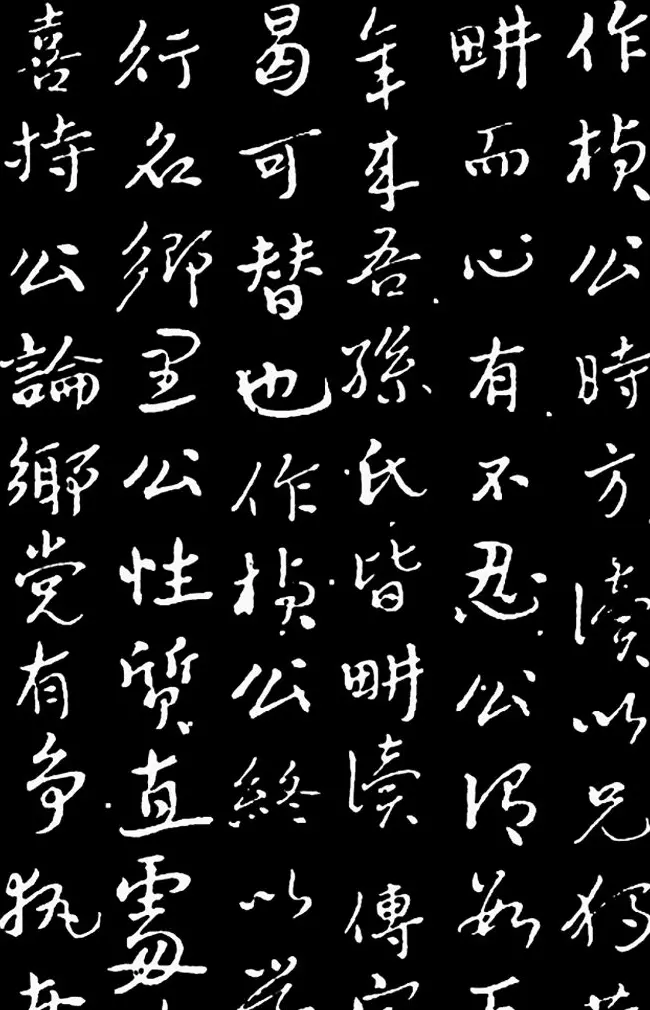 作楨公時方讀以兄獨
畊而心有不忍公謂數百
年來吾孫氏皆畊讀傳家
曷可替也作楨公終以
行名鄉里公性質直處
喜持公論鄉党有争執